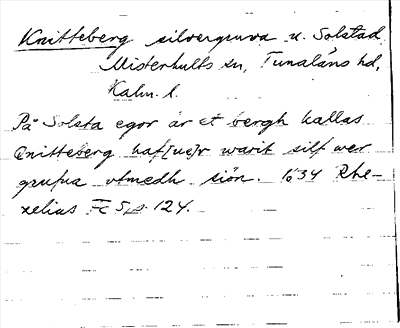 Knitteberg silvergruva u. Solstad
Misterhults sn, Tunaläns hd,
Kalm. l.
På Solsta egor är et bergh kallas
Qnitteberg haf[ue]r warit silfwer
grufua vtmedh siön. 1634 Rhe-
zelius Fc 5 s. 124.